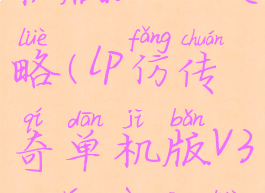 lüè fǎng chuán
略(LP仿传
qí dān jī bǎn
奇单机版V3